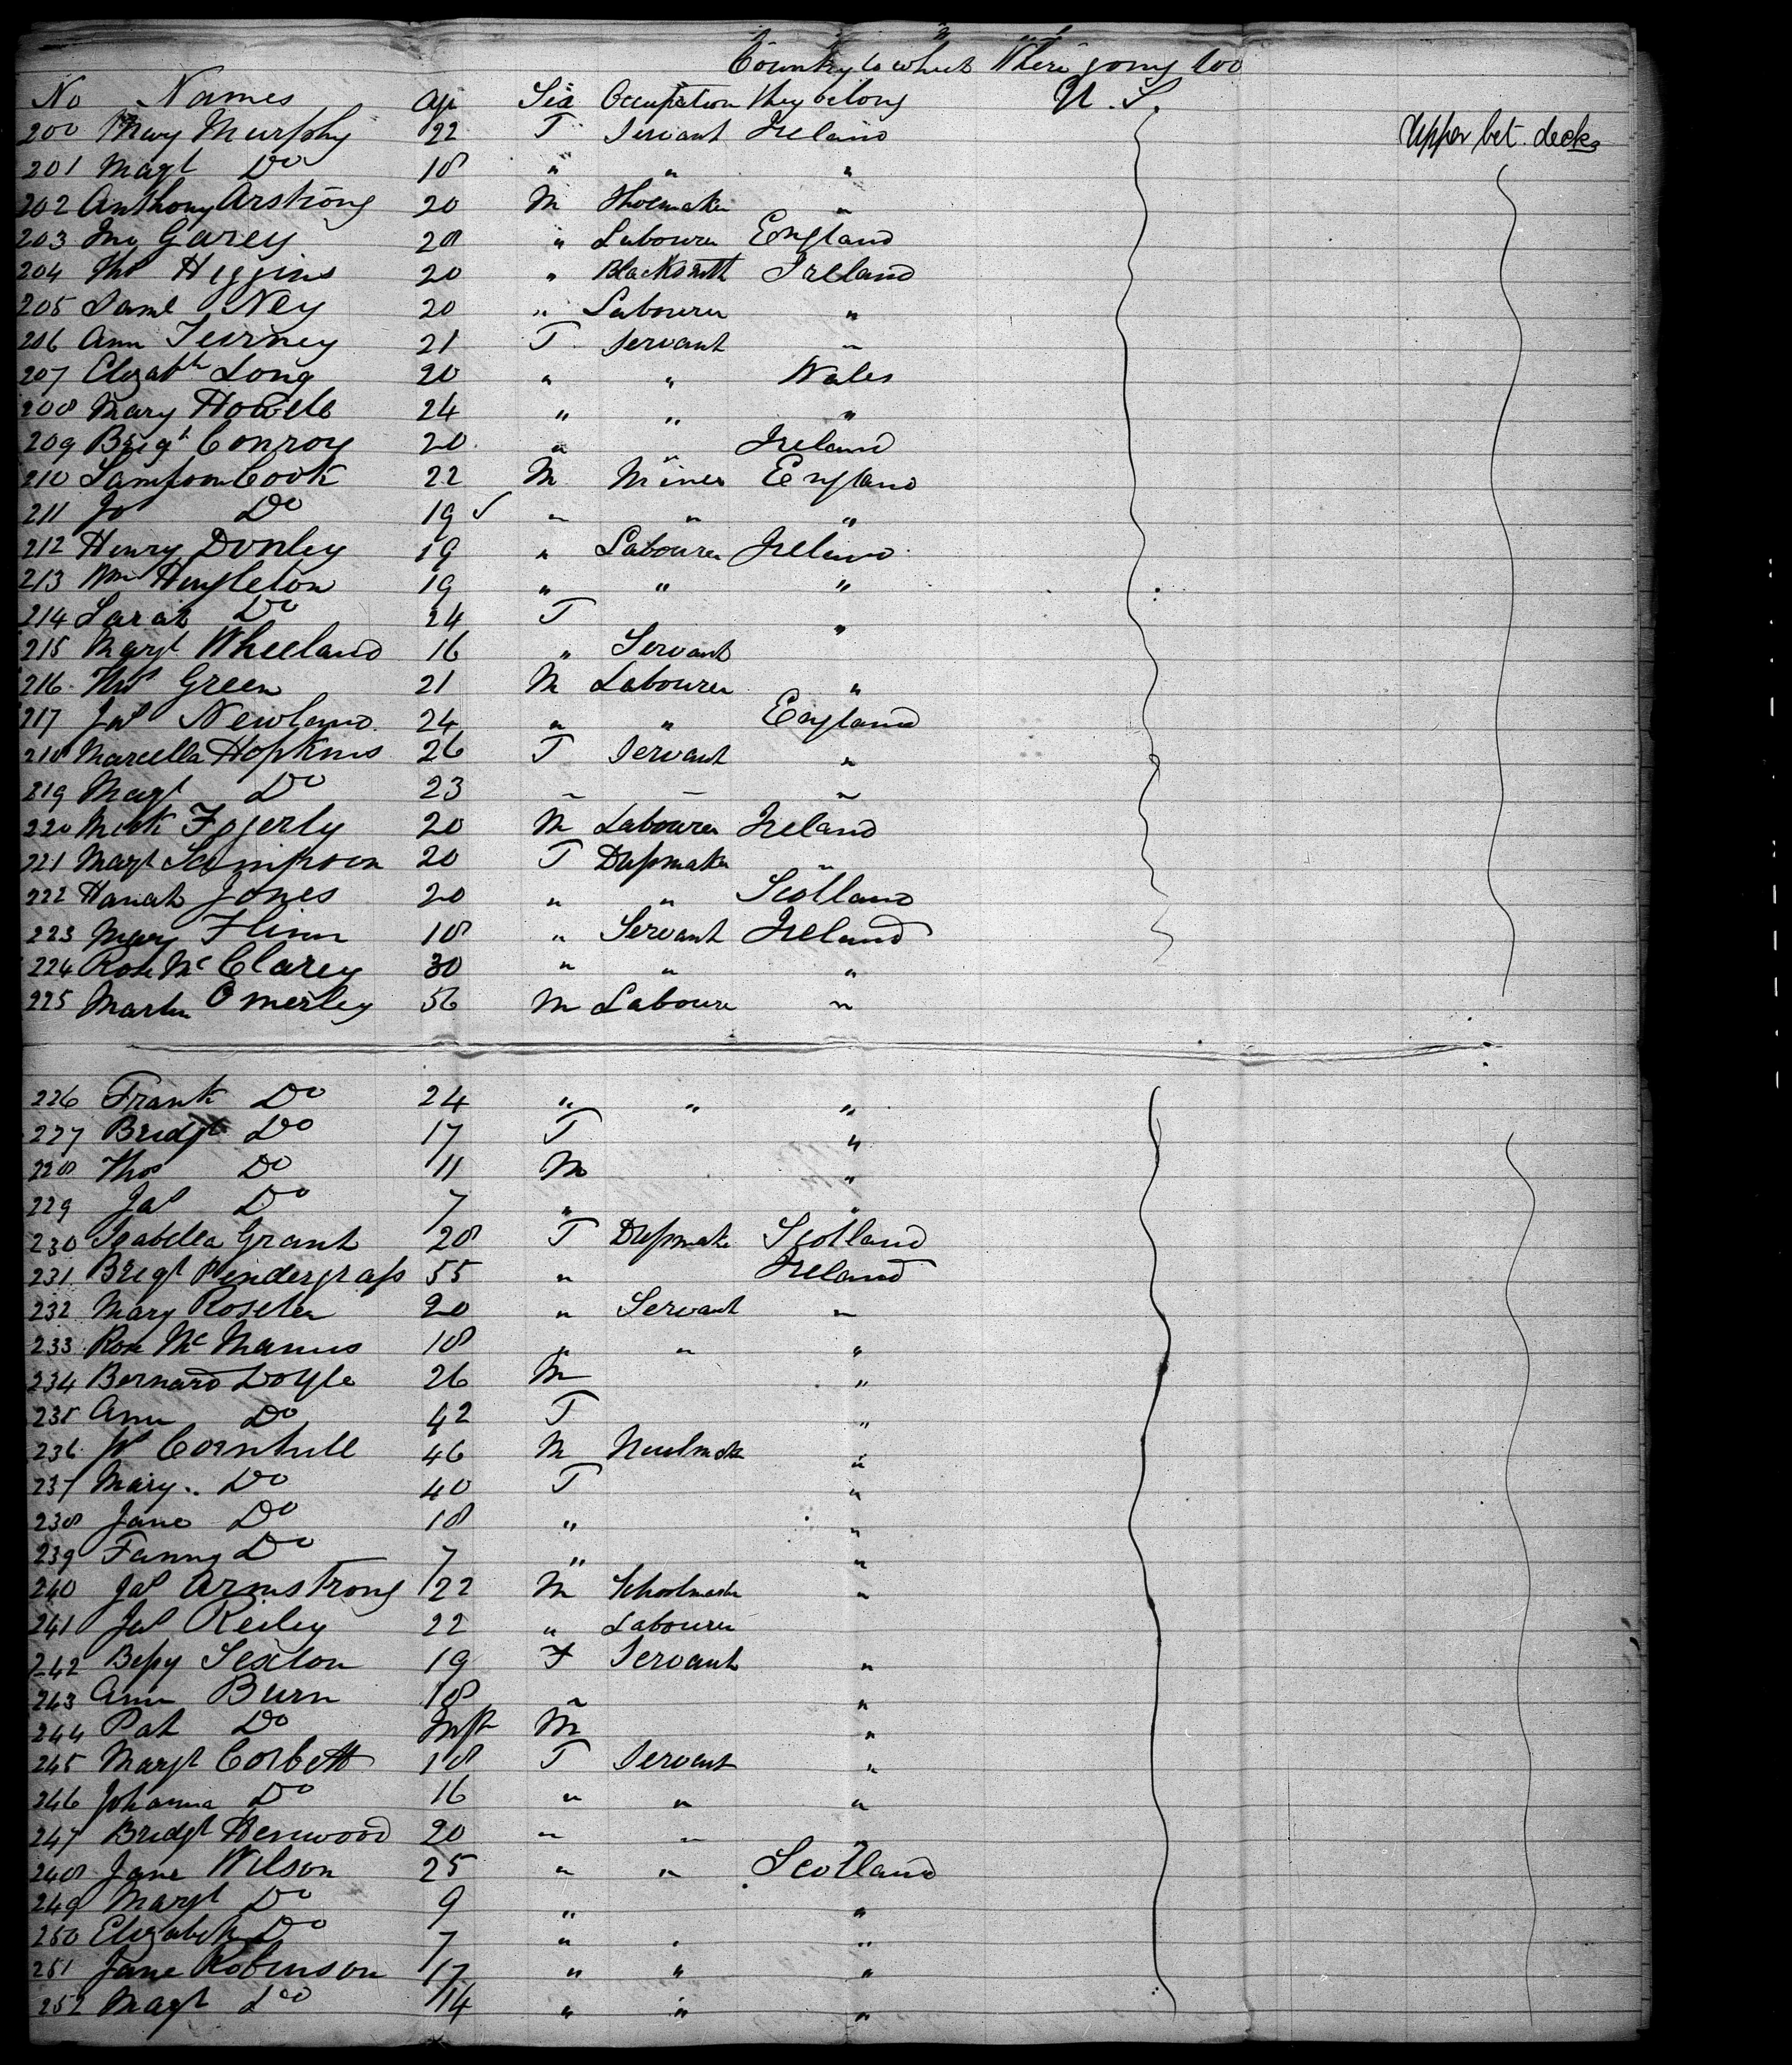 Country to which Where going too
No Names Age Sex Occupation they belong U. S.
200 Mary Murphy 22 F Servant Ireland Upper bet. decks
201 Magt Do 18 " " "
202 Anthony Arstrong 20 M Shoemaker "
203 Jno Garey 28 " Labourer England
204 Thos Higgins 20 " Blacksmith Ireland
205 Saml Ney 20 " Labourer "
206 Ann Teirney 21 F Servant "
207 Elizabth Long 20 " " Wales
208 Mary Howell 24 " " "
209 Brigt Conroy 20 " " Ireland
210 Sampson Cook 22 M Miner England
211 Jos Do 19 ✓ " " "
212 Henry Donley 19 " Labourer Ireland
213 Wm Hingleton 19 " " "
214 Sarah Do 24 F "
215 Margt Wheeland 16 " Servant
216 Thos Green 21 M Labourer "
217 Jas Newland 24 " " England
218 Marcella Hopkins 26 F Servant "
219 Magt Do 23 " " "
220 Mick Fogerty 20 M Labourer Ireland
221 Margt Simpson 20 F Dressmaker "
222 Hanah Jones 20 " " Scotland
223 Mary Flinn 18 " Servant Ireland
224 Rose Mc Clarey 30 " " "
225 Martin Omerley 56 M Labourer "
226 Frank Do 24 " " "
227 Bridgt Do 17 F "
228 Thos Do 11 M "
229 Jas Do 7 " "
230 Isabella Grant 28 F Dressmake Scotland
231 Brigt Pendergrass 55 " Ireland
232 Mary Roseter 20 " Servant "
233 Rose Mc Manus 18 " " "
234 Bernard Doyle 26 M "
235 Ann Do 42 F "
236 Cornhill 46 M "
237 Mary Do 40 F "
238 Jane Do 18 " "
239 Fanny Do 7 " "
240 Jas Armstrong 22 M Schoolmaster "
241 Jas Reiley 22 " Labourer
242 Bessy Sexton 19 F Servant "
243 Ann Burn 18 " "
244 Pat Do Inft M "
245 Margt Corbett 18 F Servant "
246 Johanna Do 16 " " "
247 Bridgt Henwood 20 " " "
248 Jane Wilson 25 " " Scotland
249 Margt Do 9 " "
250 Elizabeth Do 7 " " "
251 Jane Robinson 17 " " "
252 Magt Do 14 " " "